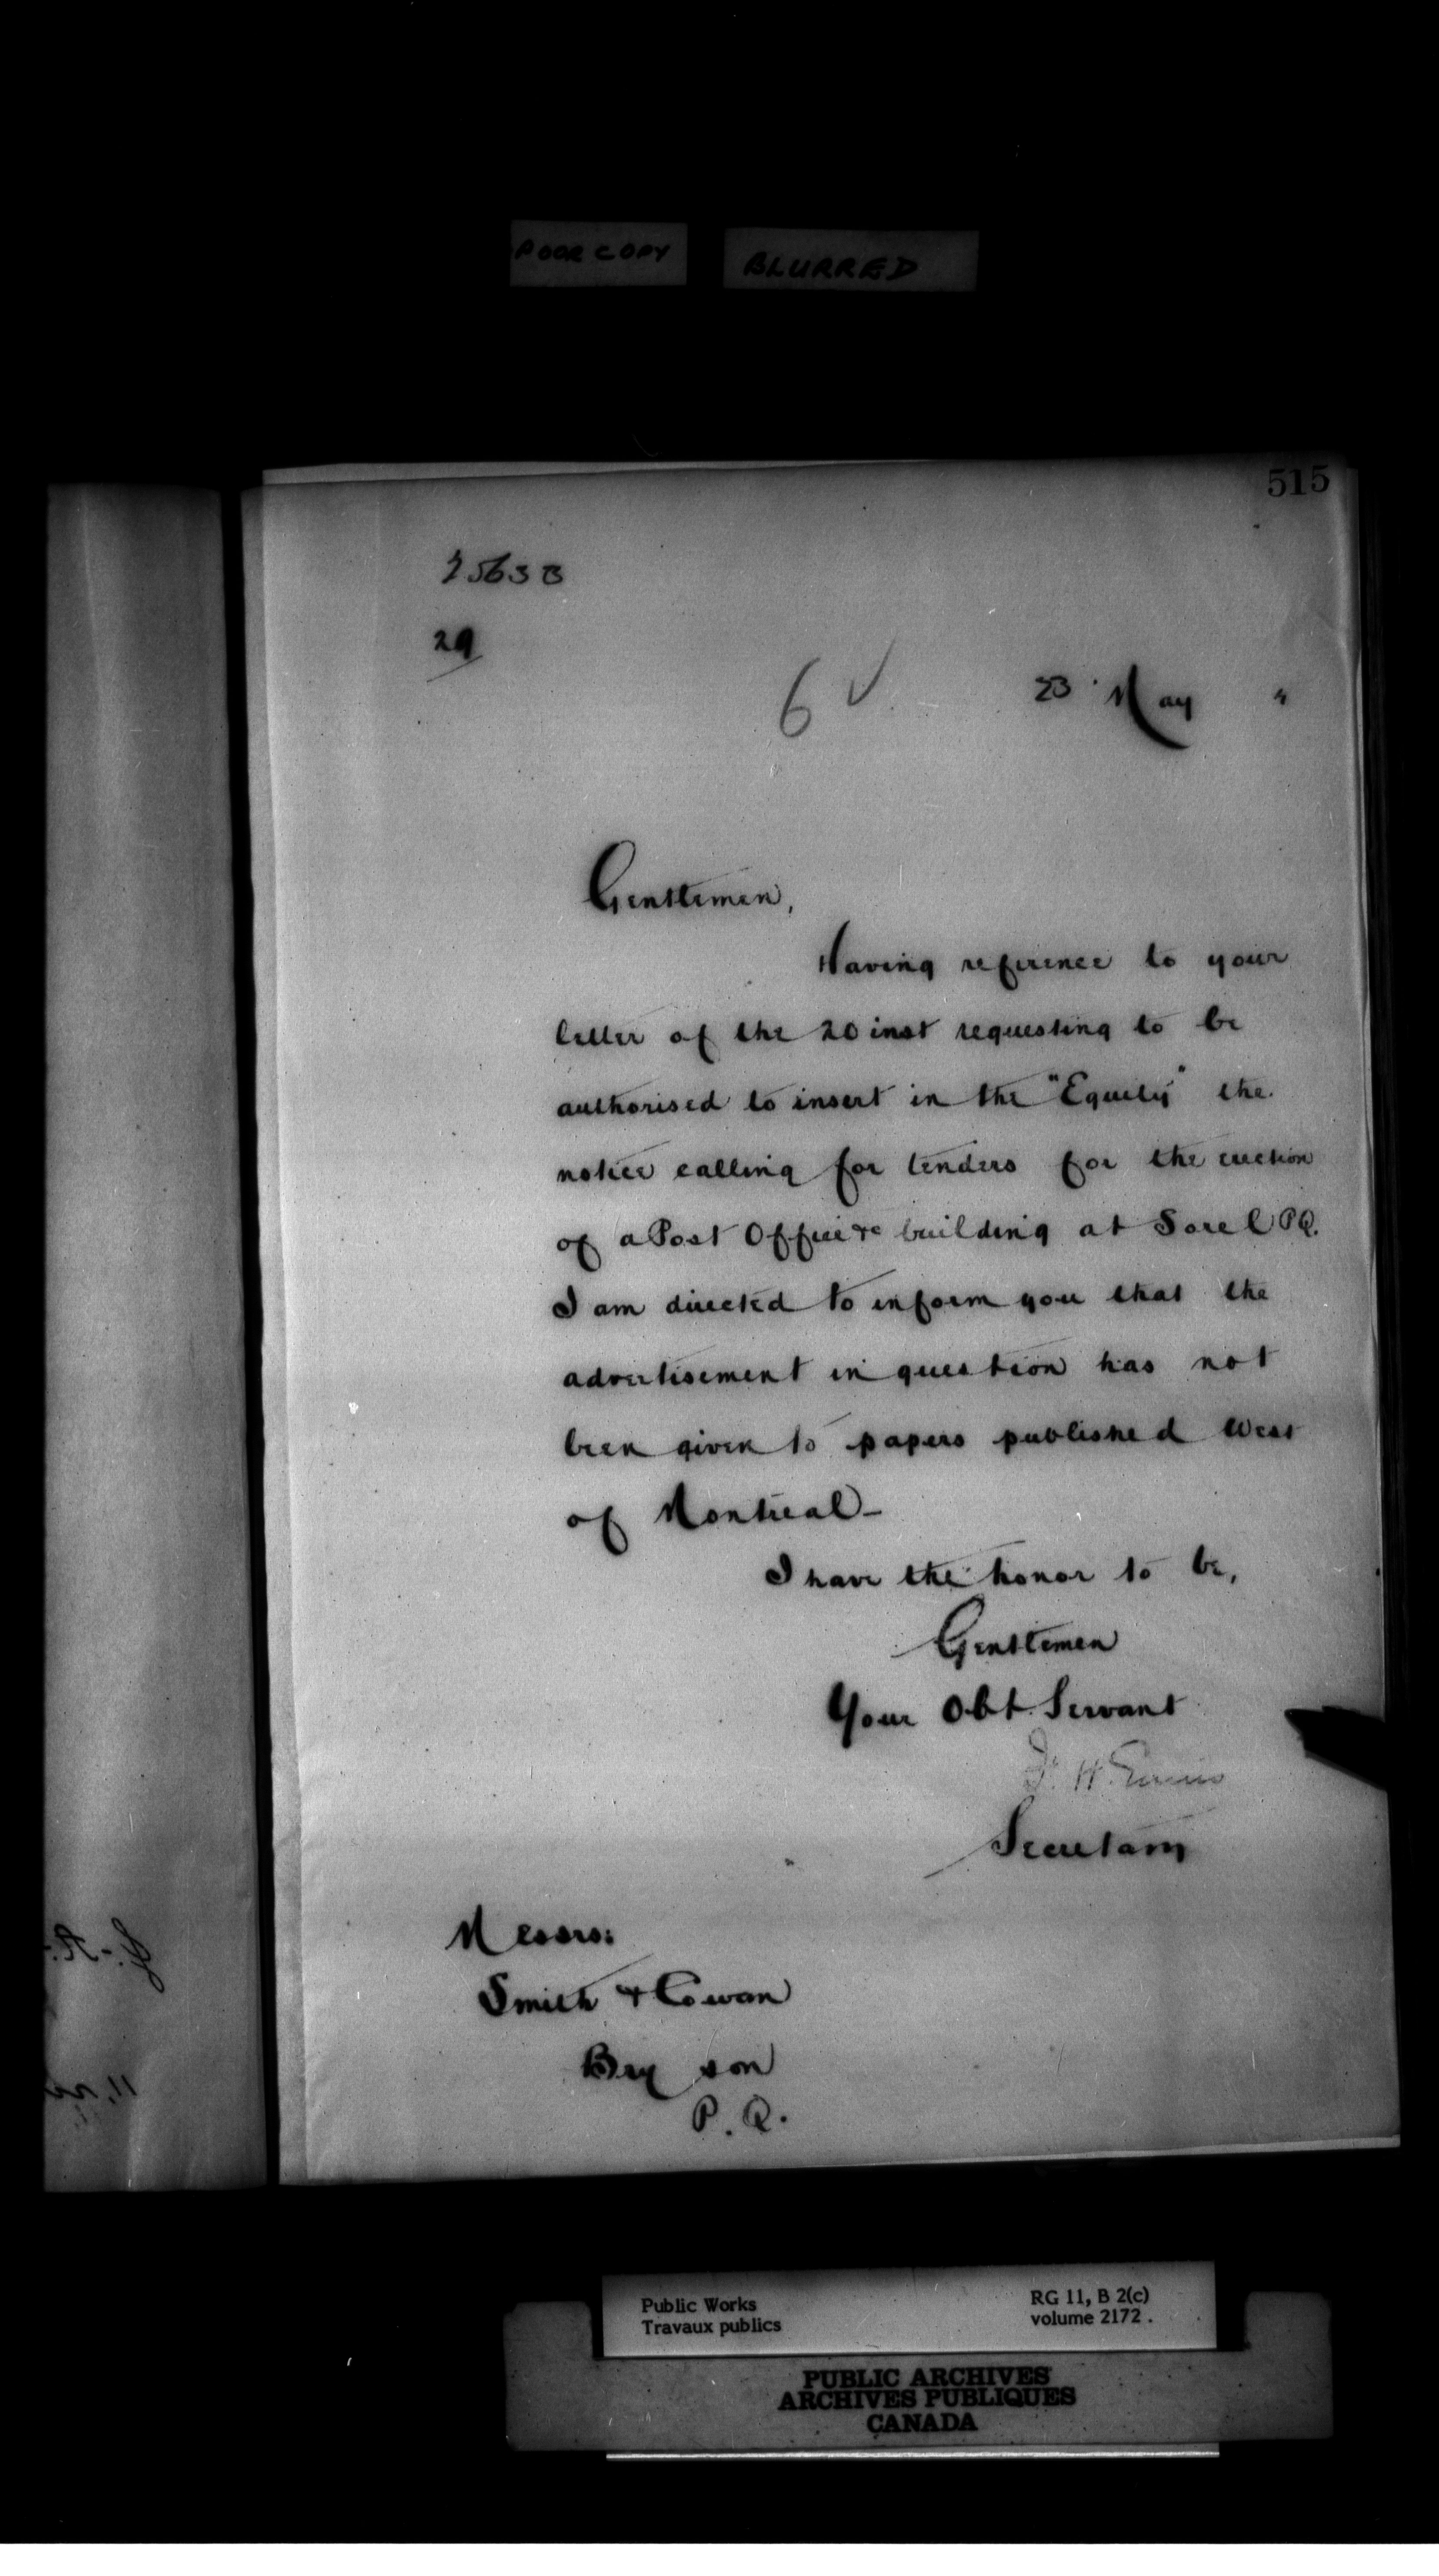 POOR COPY BLURRED
515
25633
29
6 ✓ 23 May "
Gentlemen,
Having reference to your
letter of the 20 inst requesting to be
authorised to insert in the "Equity" the
notice calling for tenders for the erection
of a Post Office &c building at Sorel P.Q.
I am directed to inform you that the
advertisement in question has not
been given to papers published West
of Montreal -
I have the honor to be,
Gentlemen
Your Obt. Servant
Secretary
Messrs:
Smith & Cowan
Bryson
P. Q.
Public Works RG 11, B 2(c)
Travaux publics volume 2172.
PUBLIC ARCHIVES
ARCHIVES PUBLIQUES
CANADA